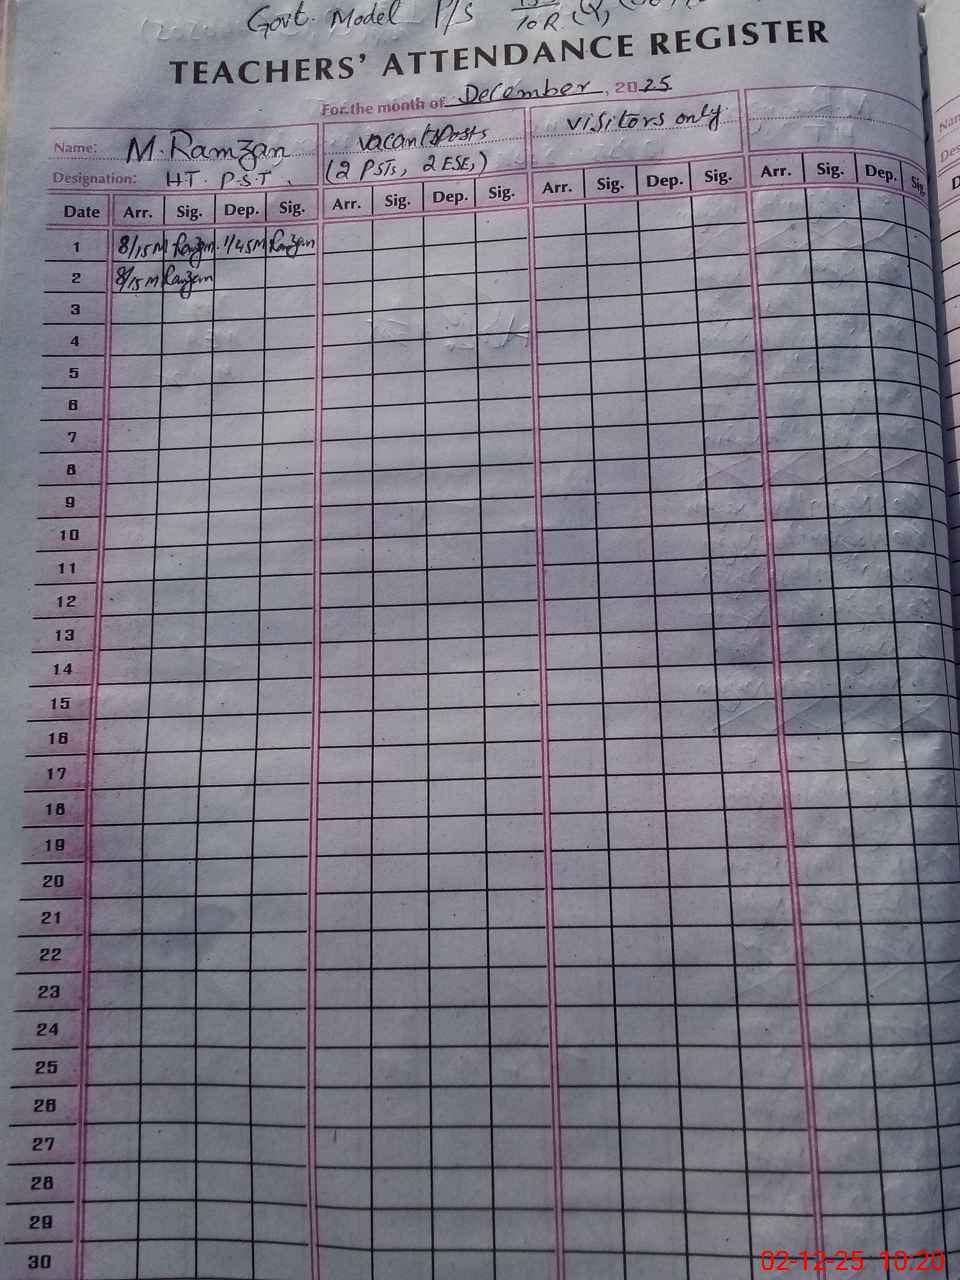 Govt. Model P/S 10R
TEACHERS' ATTENDANCE REGISTER
For the month of December, 2025
Name: M. Ramzan vacant Posts visitors only
Designation: HT. P.S.T. (2 PSTs, 2 ESE,)
Date Arr. Sig. Dep. Sig. Arr. Sig. Dep. Sig. Arr. Sig. Dep. Sig. Arr. Sig. Dep. Sig.
1 8/15 M Ramzan 1/45 M Ramzan
2 8/15 M Ramzan
3
4
5
6
7
8
9
10
11
12
13
14
15
16
17
18
19
20
21
22
23
24
25
26
27
28
29
30
02-12-25 10:20